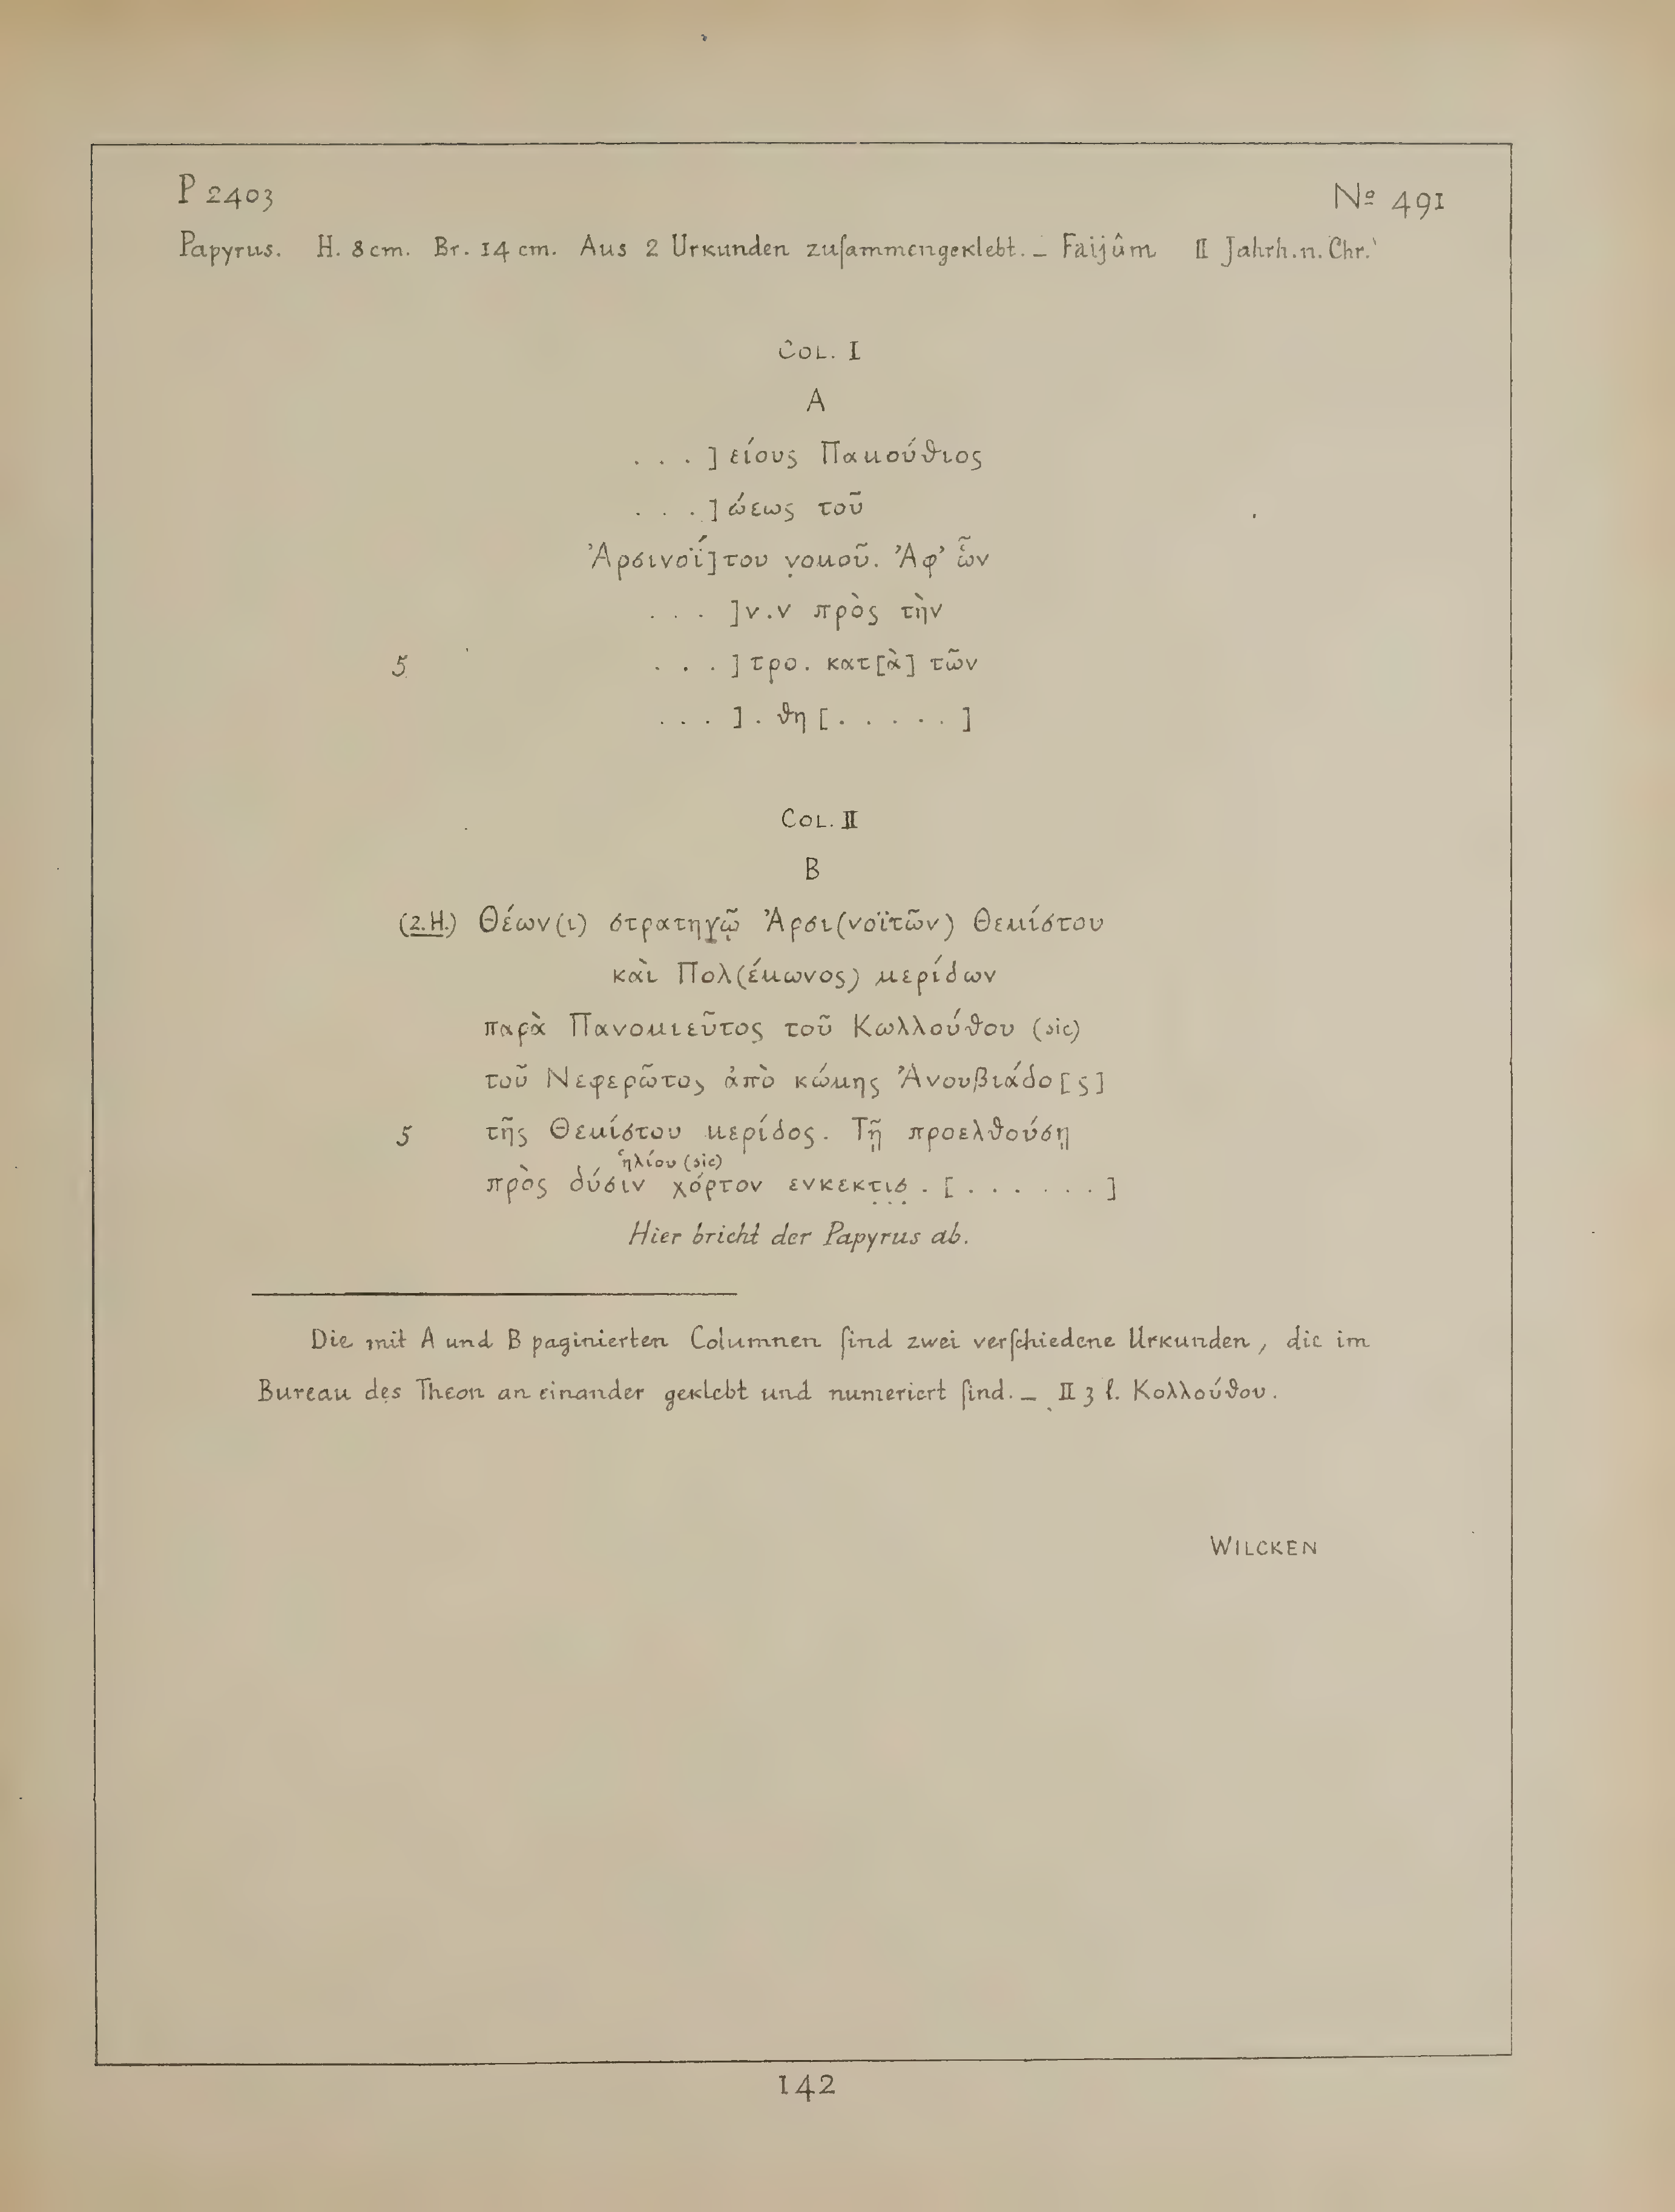 P 2403 Nº 491
Papyrus. H. 8 cm. Br. 14 cm. Aus 2 Urkunden zuſammengeklebt. _ Faijûm II Jahrh. n. Chr.
COL. I
A
. . . ] είους Παμούθιος
. . . ] ώεως τοῦ
Ἀρσινοΐ]του ν̣ομοῦ. Ἀφ’ ὧν
. . . ]ν.ν πρὸς τὴν
5 . . . ] τρο. κατ[ὰ] τῶν
. . . ] . θη [ . . . . . ]
COL. II
B
(2. H.) Θέων(ι) στρατηγῷ Ἀρσι(νοϊτῶν) Θεμίστου
καὶ Πολ(έμωνος) μερίδων
παρὰ Πανομιεῦτος τοῦ Κωλλούθου (sic)
τοῦ Νεφερῶτος ἀπὸ κώμης Ἀνουβιάδο[ς]
5 τῆς Θεμίστου μερίδος. Τῇ προελθούσῃ
ἡλίου (sic)
πρὸς δύσιν χόρτον ενκεκτ̣ι̣σ̣ . [ . . . . . . ]
Hier bricht der Papyrus ab.
Die mit A und B paginierten Columnen ſind zwei verſchiedene Urkunden, die im
Bureau des Theon an einander geklebt und numeriert ſind. _ II 3 l. Κολλούθου.
WILCKEN
142